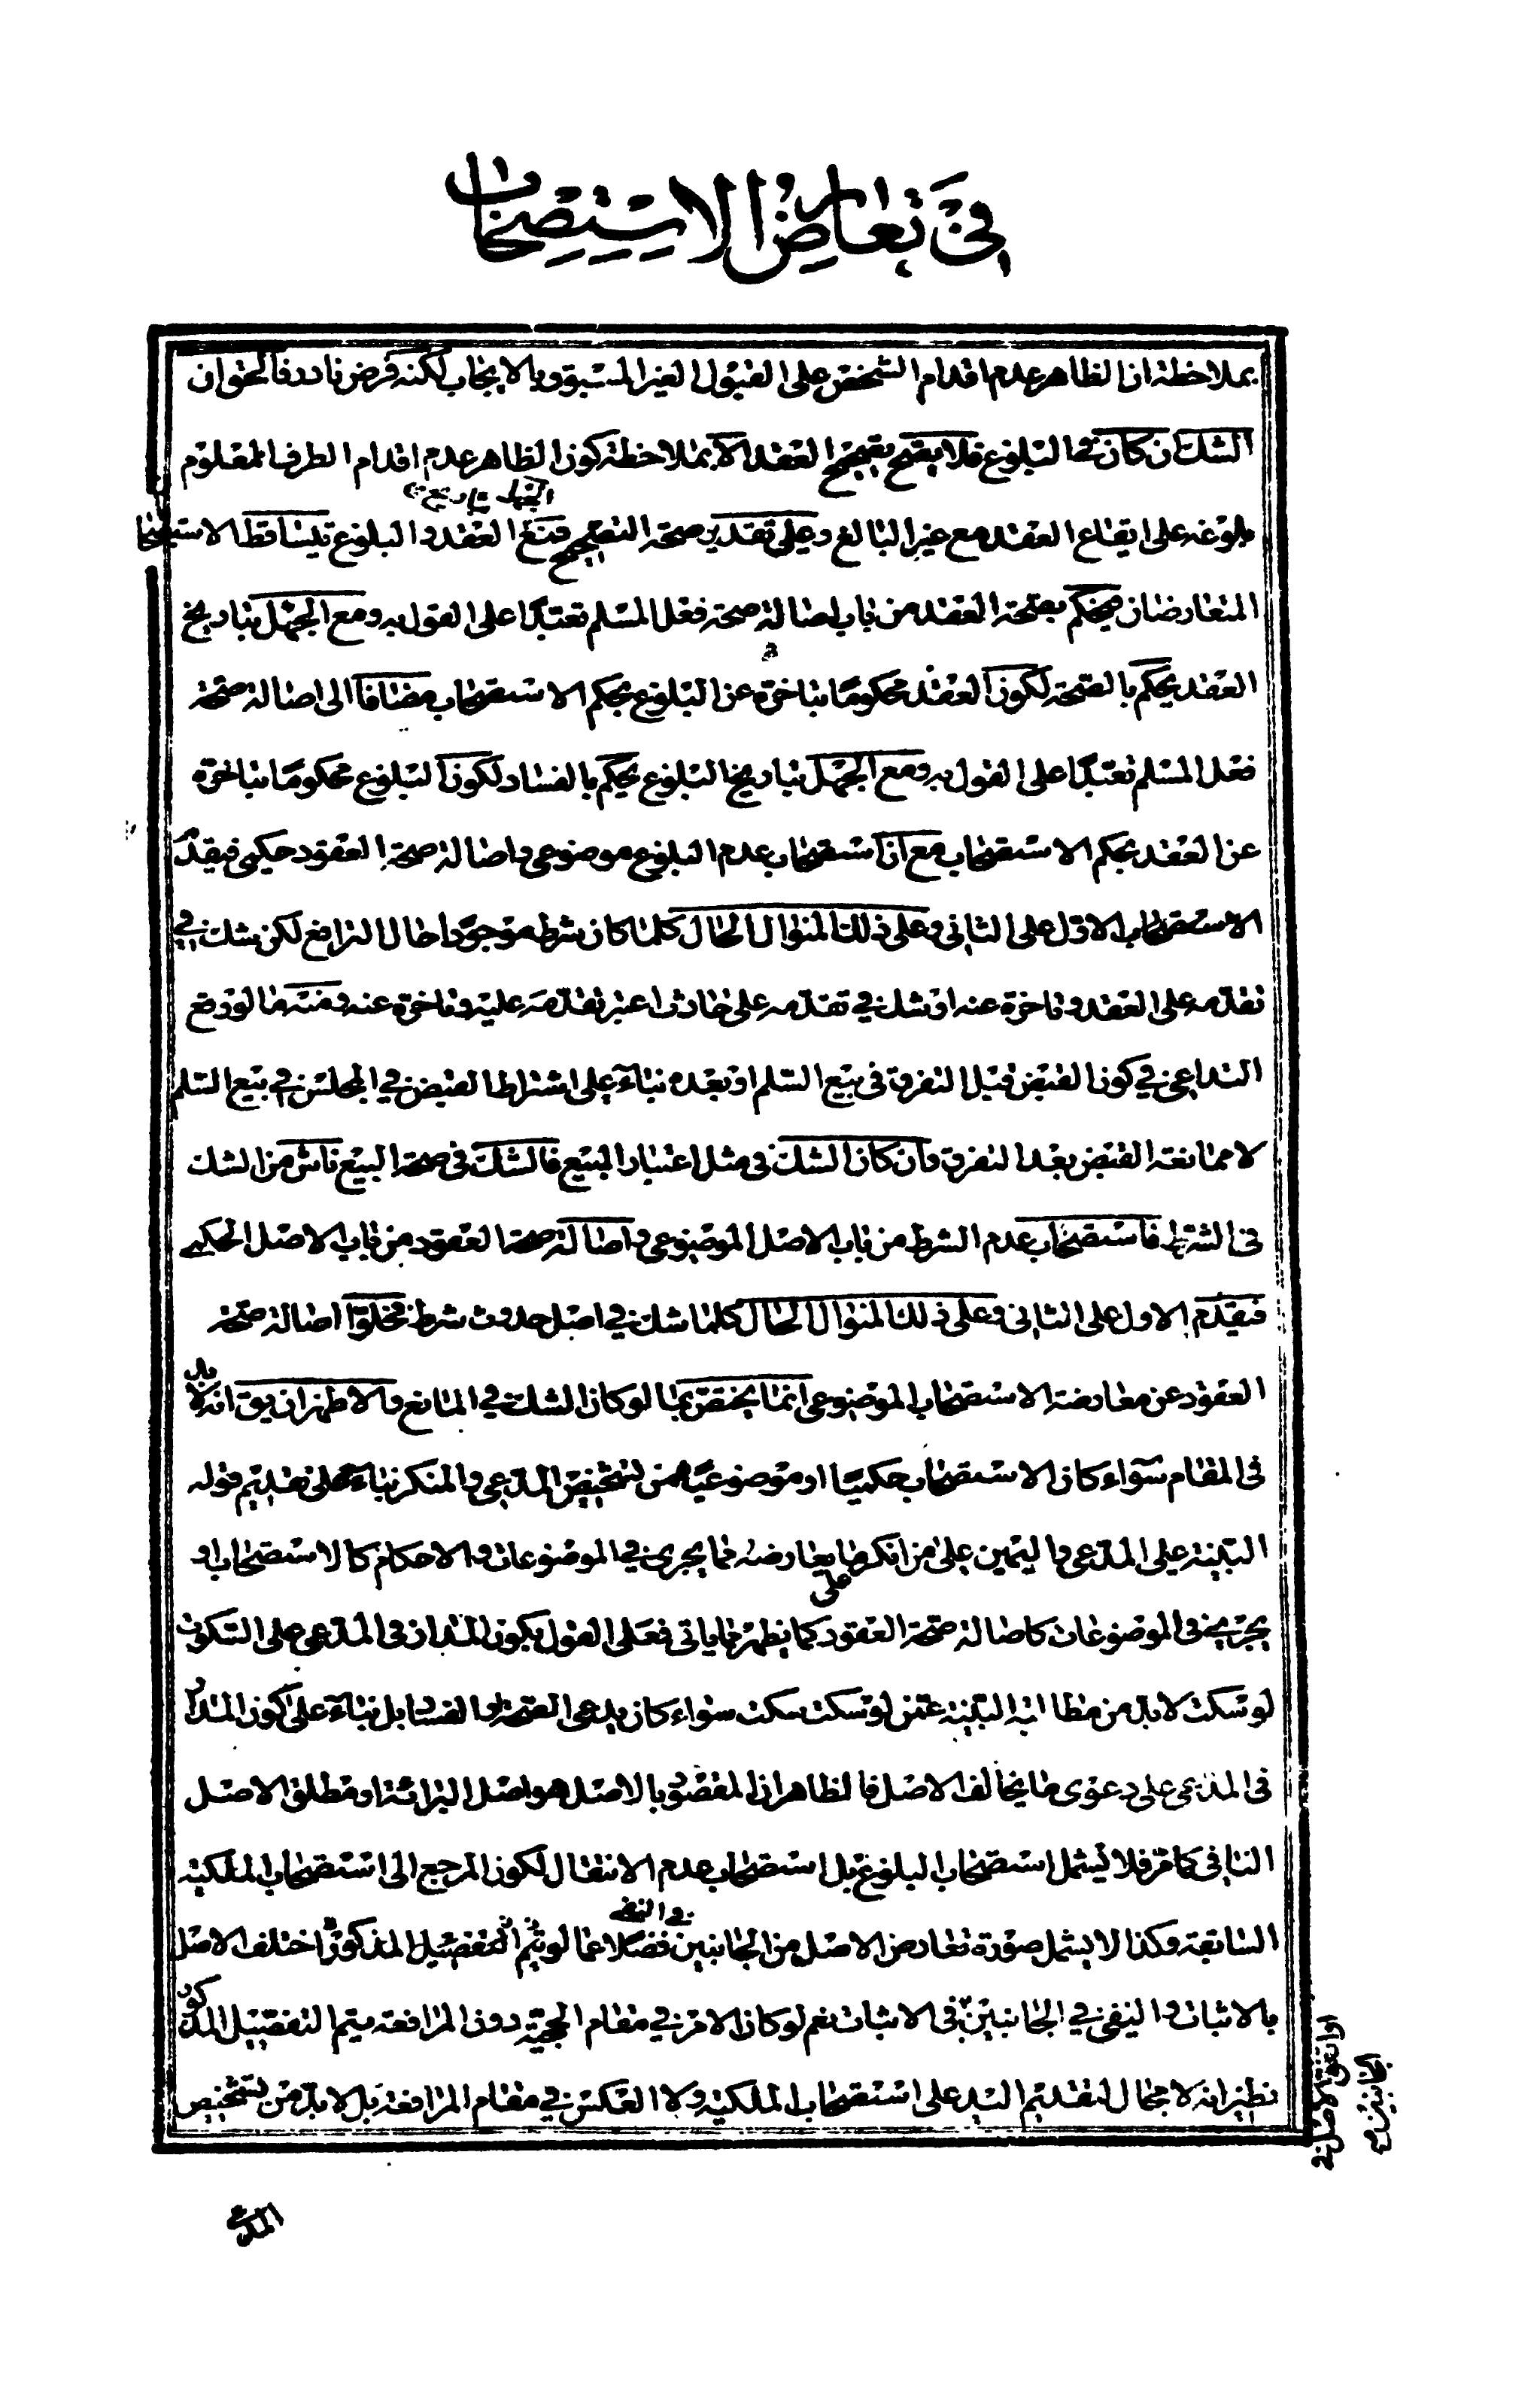 في تعارض الاستصحاب
بملاحظة ان الظاهر عدم اقدام الشخص على القبول الغير المسبوق بالايجاب لكنه فرض نادر فالحق ان
الشك ان كان في البلوغ فلا يصح تصحيح العقد الا بملاحظة كون الظاهر عدم اقدام الطرف المعلوم
بلوغه على ايقاع العقد مع غير البالغ وعلى تقدير صحة التصحيح فمع الجهل بتاريخ العقد والبلوغ يتساقط الاستصحابان
المتعارضان فيحكم بصحة العقد من باب اصالة صحة فعل المسلم تعبدا على القول به ومع الجهل بتاريخ
العقد يحكم بالصحة لكون العقد محكوما بتاخره عن البلوغ بحكم الاستصحاب مضافا الى اصالة صحة
فعل المسلم تعبدا على القول به ومع الجهل بتاريخ البلوغ يحكم بالفساد لكون البلوغ محكوما بتاخره
عن العقد بحكم الاستصحاب مع ان استصحاب عدم البلوغ موضوعي واصالة صحة العقود حكمي فيقدم
الاستصحاب الاول على الثاني وعلى ذلك المنوال الحال كلما كان شرط موجودا حال الترافع لكن يشك في
تقدمه على العقد وتاخره عنه او شك في تقدمه على حادث اعتبر تقدمه عليه وتاخره عنه ومنه ما لو وقع
التداعي في كون القبض قبل التفرق في بيع السلم او بعده بناء على اشتراط القبض في المجلس في بيع السلم
لا ممانعة القبض بعد التفرق وان كان الشك في مثل اعتبار المبيع فالشك في صحة البيع ناش من الشك
في الشرط فاستصحاب عدم الشرط من باب الاصل الموضوعي واصالة صحة العقود من باب الاصل الحكمي
فيقدم الاول على الثاني وعلى ذلك المنوال الحال كلما شك في اصل حدوث شرط فخلو اصالة صحة
العقود عن معارضة الاستصحاب الموضوعي انما يختص بما لو كان الشك في المانع والاظهر ان يق انه لا بد
في المقام سواء كان الاستصحاب حكميا او موضوعيا من تشخيص المدعي والمنكر بناء على تقديم قوله
البينة على المدعي واليمين على من انكر على ما يعارضه مما يجري في الموضوعات والاحكام كالاستصحاب او
يجري في الموضوعات كاصالة صحة العقود كما يظهر مما ياتي فعلى القول بكون المدار في المدعي على السكوت
لو سكت لا بد من مطالبة البينة عمن لو سكت سكت سواء كان يدعي الصحة او الفساد بل بناء على كون المدار
في المدعي على دعوى ما يخالف الاصل فالظاهر ان المقصود بالاصل هو اصل البرائة او مطلق الاصل
النافي كما مر فلا يشمل استصحاب البلوغ بل استصحاب عدم الانتقال لكون المرجع الى استصحاب الملكية
السابقة وكذا لا يشمل صورة تعارض الاصل من الجانبين في النفي فضلا عما لو يتم التفصيل المذكور اختلف الاصل
بالاثبات والنفي في الجانبين او اتفق الاصل في الجانبين في الاثبات نعم لو كان الامر في مقام الحجية دون المرافعة يتم التفصيل المذكور
نظير انه لا مجال لتقديم اليد على استصحاب الملكية ولا العكس في مقام المرافعة بل لا بد من تشخيص
المدعي